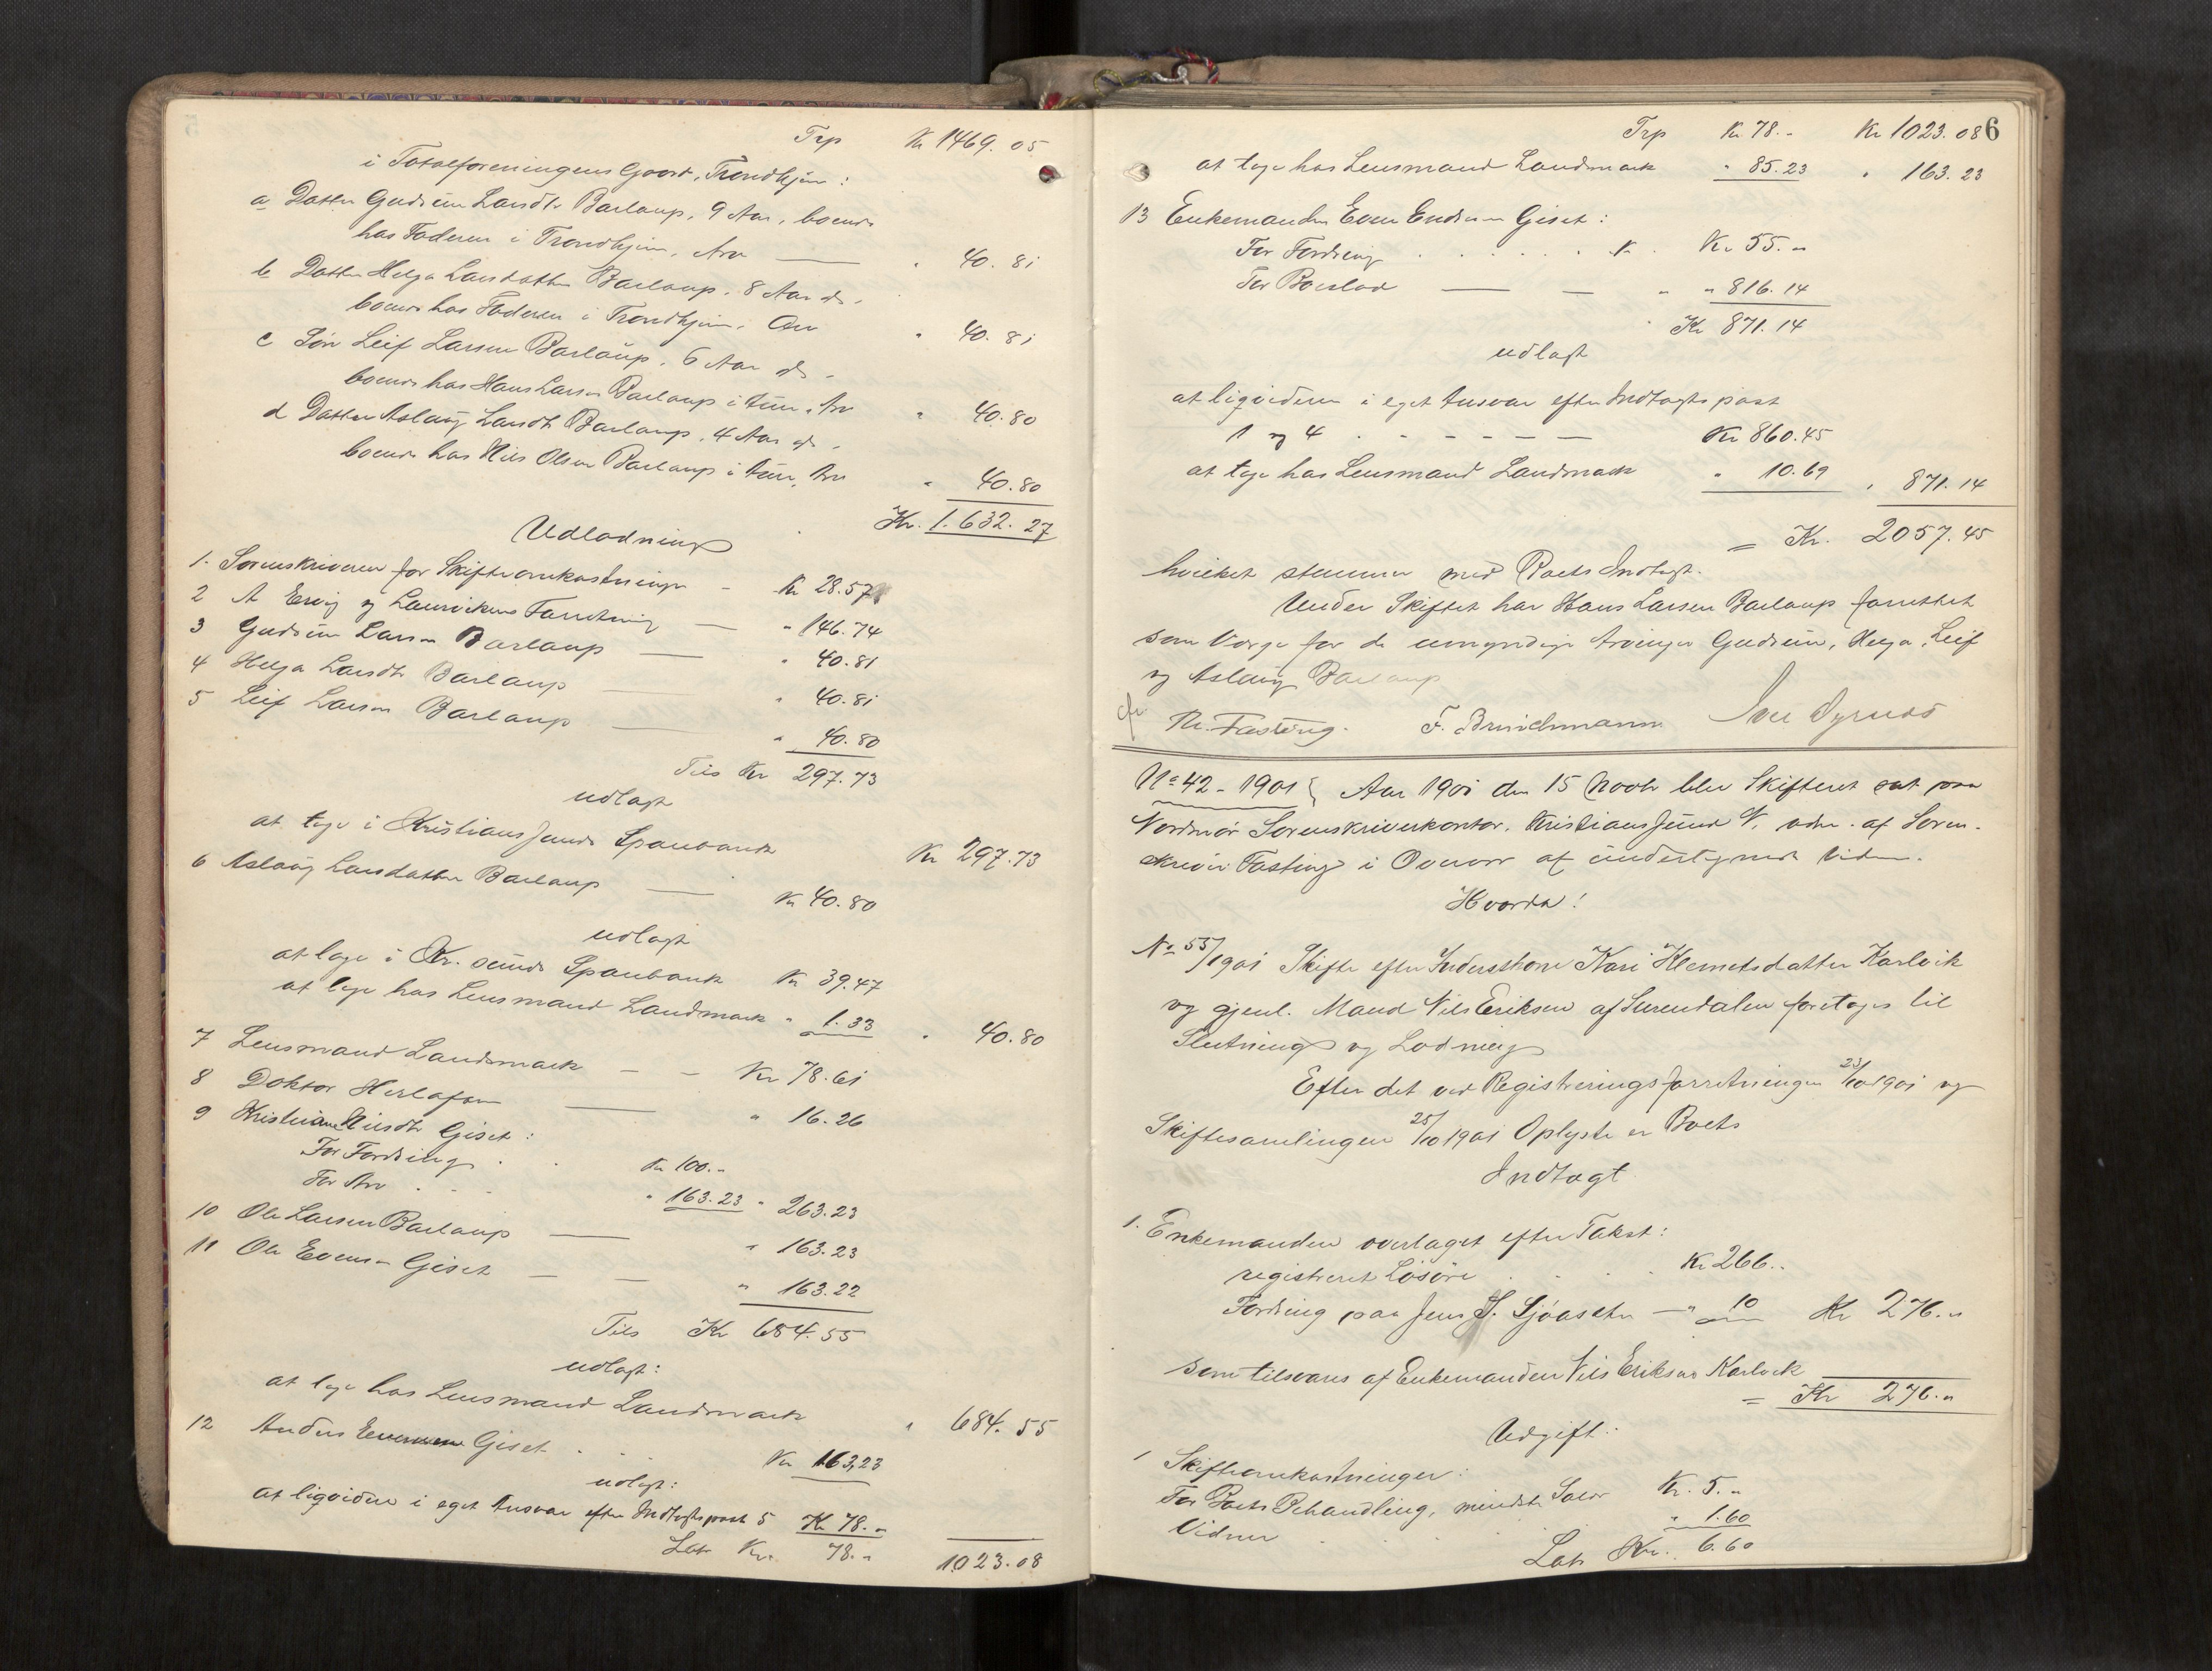 Trp Kr 1469.05
i Totalforeningens Gaard, Trondhjem:
a Datter Gudrun Larsdtr Barlaup, 9 Aar, boende
hos Faderen i Trondhjem, Arv — " 40.81
b Datter Helga Larsdatter Barlaup, 8 Aar
boende hos Faderen i Trondhjem. Arv " 40.81
c Søn Leif Larsen Barlaup, 6 Aar
boende hos Hans Larsen Barlaup i Arv " 40.80
d Datter Aslaug Larsdtr Barlaup, 4 Aar
boende hos Nils Olsen Barlaup i Arv " 40.80
Kr. 1.632.27
Udlodning
1. Sorenskriveren for Skifteomkostninger - Kr 28.57
2 A og — " 146.74
3 Gudrun Larsen Barlaup — " 40.81
4 Helga Larsdtr Barlaup — " 40.81
5 Leif Larsen Barlaup — " 40.80
Tils Kr 297.73
udlagt
at tage i Kristianssunds Sparebank Kr 297.73
6 Aslaug Larsdatter Barlaup — Kr 40.80
udlagt
at tage i Kr.sunds Sparebank Kr 39.47
at tage hos Lensmand Landmark " 1.33 " 40.80
7 Lensmand Landmark — — Kr 78.61
8 Doktor — " 16.26
9 Kristiane Nilsdtr Giset:
For Fordring . . Kr 100.-
For Arv . . . " 163.23 " 263.23
10 Ole Larsen Barlaup — " 163.23
11 Ole Evensen Giset — — " 163.22
Tils Kr 684.55
udlagt:
at tage hos Lensmand Landmark " 684.55
12 Anders Evensen Giset . . Kr 163,23
udlagt:
at ligvidere i eget Ansvar efter Indtægtspost 5 Kr 78.-
Lat. Kr. 78.- 1023.08
6
Trp Kr. 78.- Kr 1023.08
at tage hos Lensmand Landmark " 85.23 " 163.23
13 Enkemanden Even Endresen Giset:
For Fordring . . . . . Kr. 55.-
For Boeslod — — " " 816.14
Kr 871.14
udlagt
at ligvidere i eget Ansvar efter Indtægtspost
1 og 4 . - - - - — Kr 860.45
at tage hos Lensmand Landmark " 10.69 " 871.14
= Kr. 2057.45
hvilket stemmer med Boets Indtægt.
Under Skiftet har Hans Larsen Barlaup forrettet
som Værge for de umyndige Arvinger Gudrun, Helga, Leif
og Aslaug Barlaup
Th. Fasting. F. Brinchmann Iver Syrnes
No 42 - 1901 { Aar 1901 den 15 Novbr blev Skifteret sat paa
Nordmør Sorenskriverkontor, Kristianssund N. adm. af Soren-
skriver Fasting i Overvær af undertegnede Vidner.
Hvorda!
No 55/1901 Skifte efter Inderstkone Kari Klemetsdatter Karlvik
og gjenl. Mand Nils Eriksen af Surendalen foretoges til
Slutning og Lodning
Efter det ved Registreringsforretningen 23/10 1901 og
Skiftesamlingen 25/10 1901 Oplyste er Boets
Indtægt
1. Enkemanden overtaget efter Takst:
registreret Løsøre . . . . Kr 266..
Fordring paa Jens J. Sjøasæter — " 10 Kr 276.-
som tilsvares af Enkemanden Nils Eriksen Karlvik
= Kr 276.-
Udgift:
1 Skifteomkostninger:
For Boets Behandling, mindste Salær Kr. 5.-
Vidner . . . " 1.60
Lat. Kr. 6.60